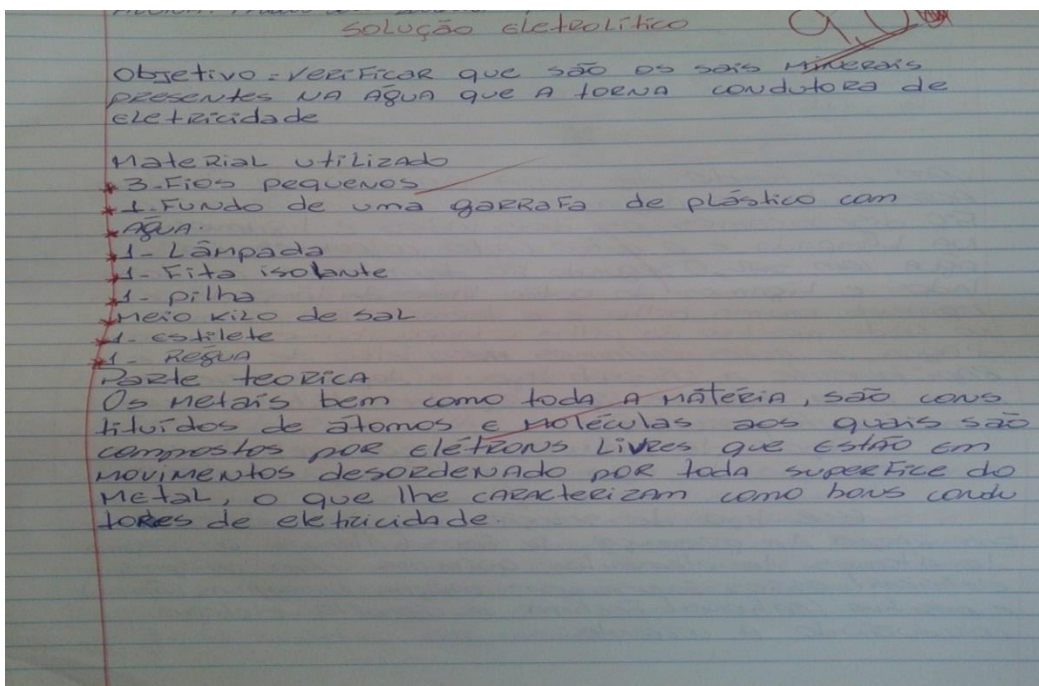 solução eletrolítico
9,0
Objetivo = verificar que são os sais minerais
presentes na água que a torna condutora de
eletricidade
Material utilizado
3-Fios pequenos
1-Fundo de uma garrafa de plástico com
água.
1- Lâmpada
1- Fita isolante
1- pilha
Meio kizo de sal
1- estilete
1- Régua
Parte teorica
Os metais bem como toda a matéria, são cons
tituídos de átomos e moléculas aos quais são
compostos por elétrons livres que estão em
movimentos desordenado por toda superfice do
metal, o que lhe caracterizam como bons condu
tores de eletricidade.